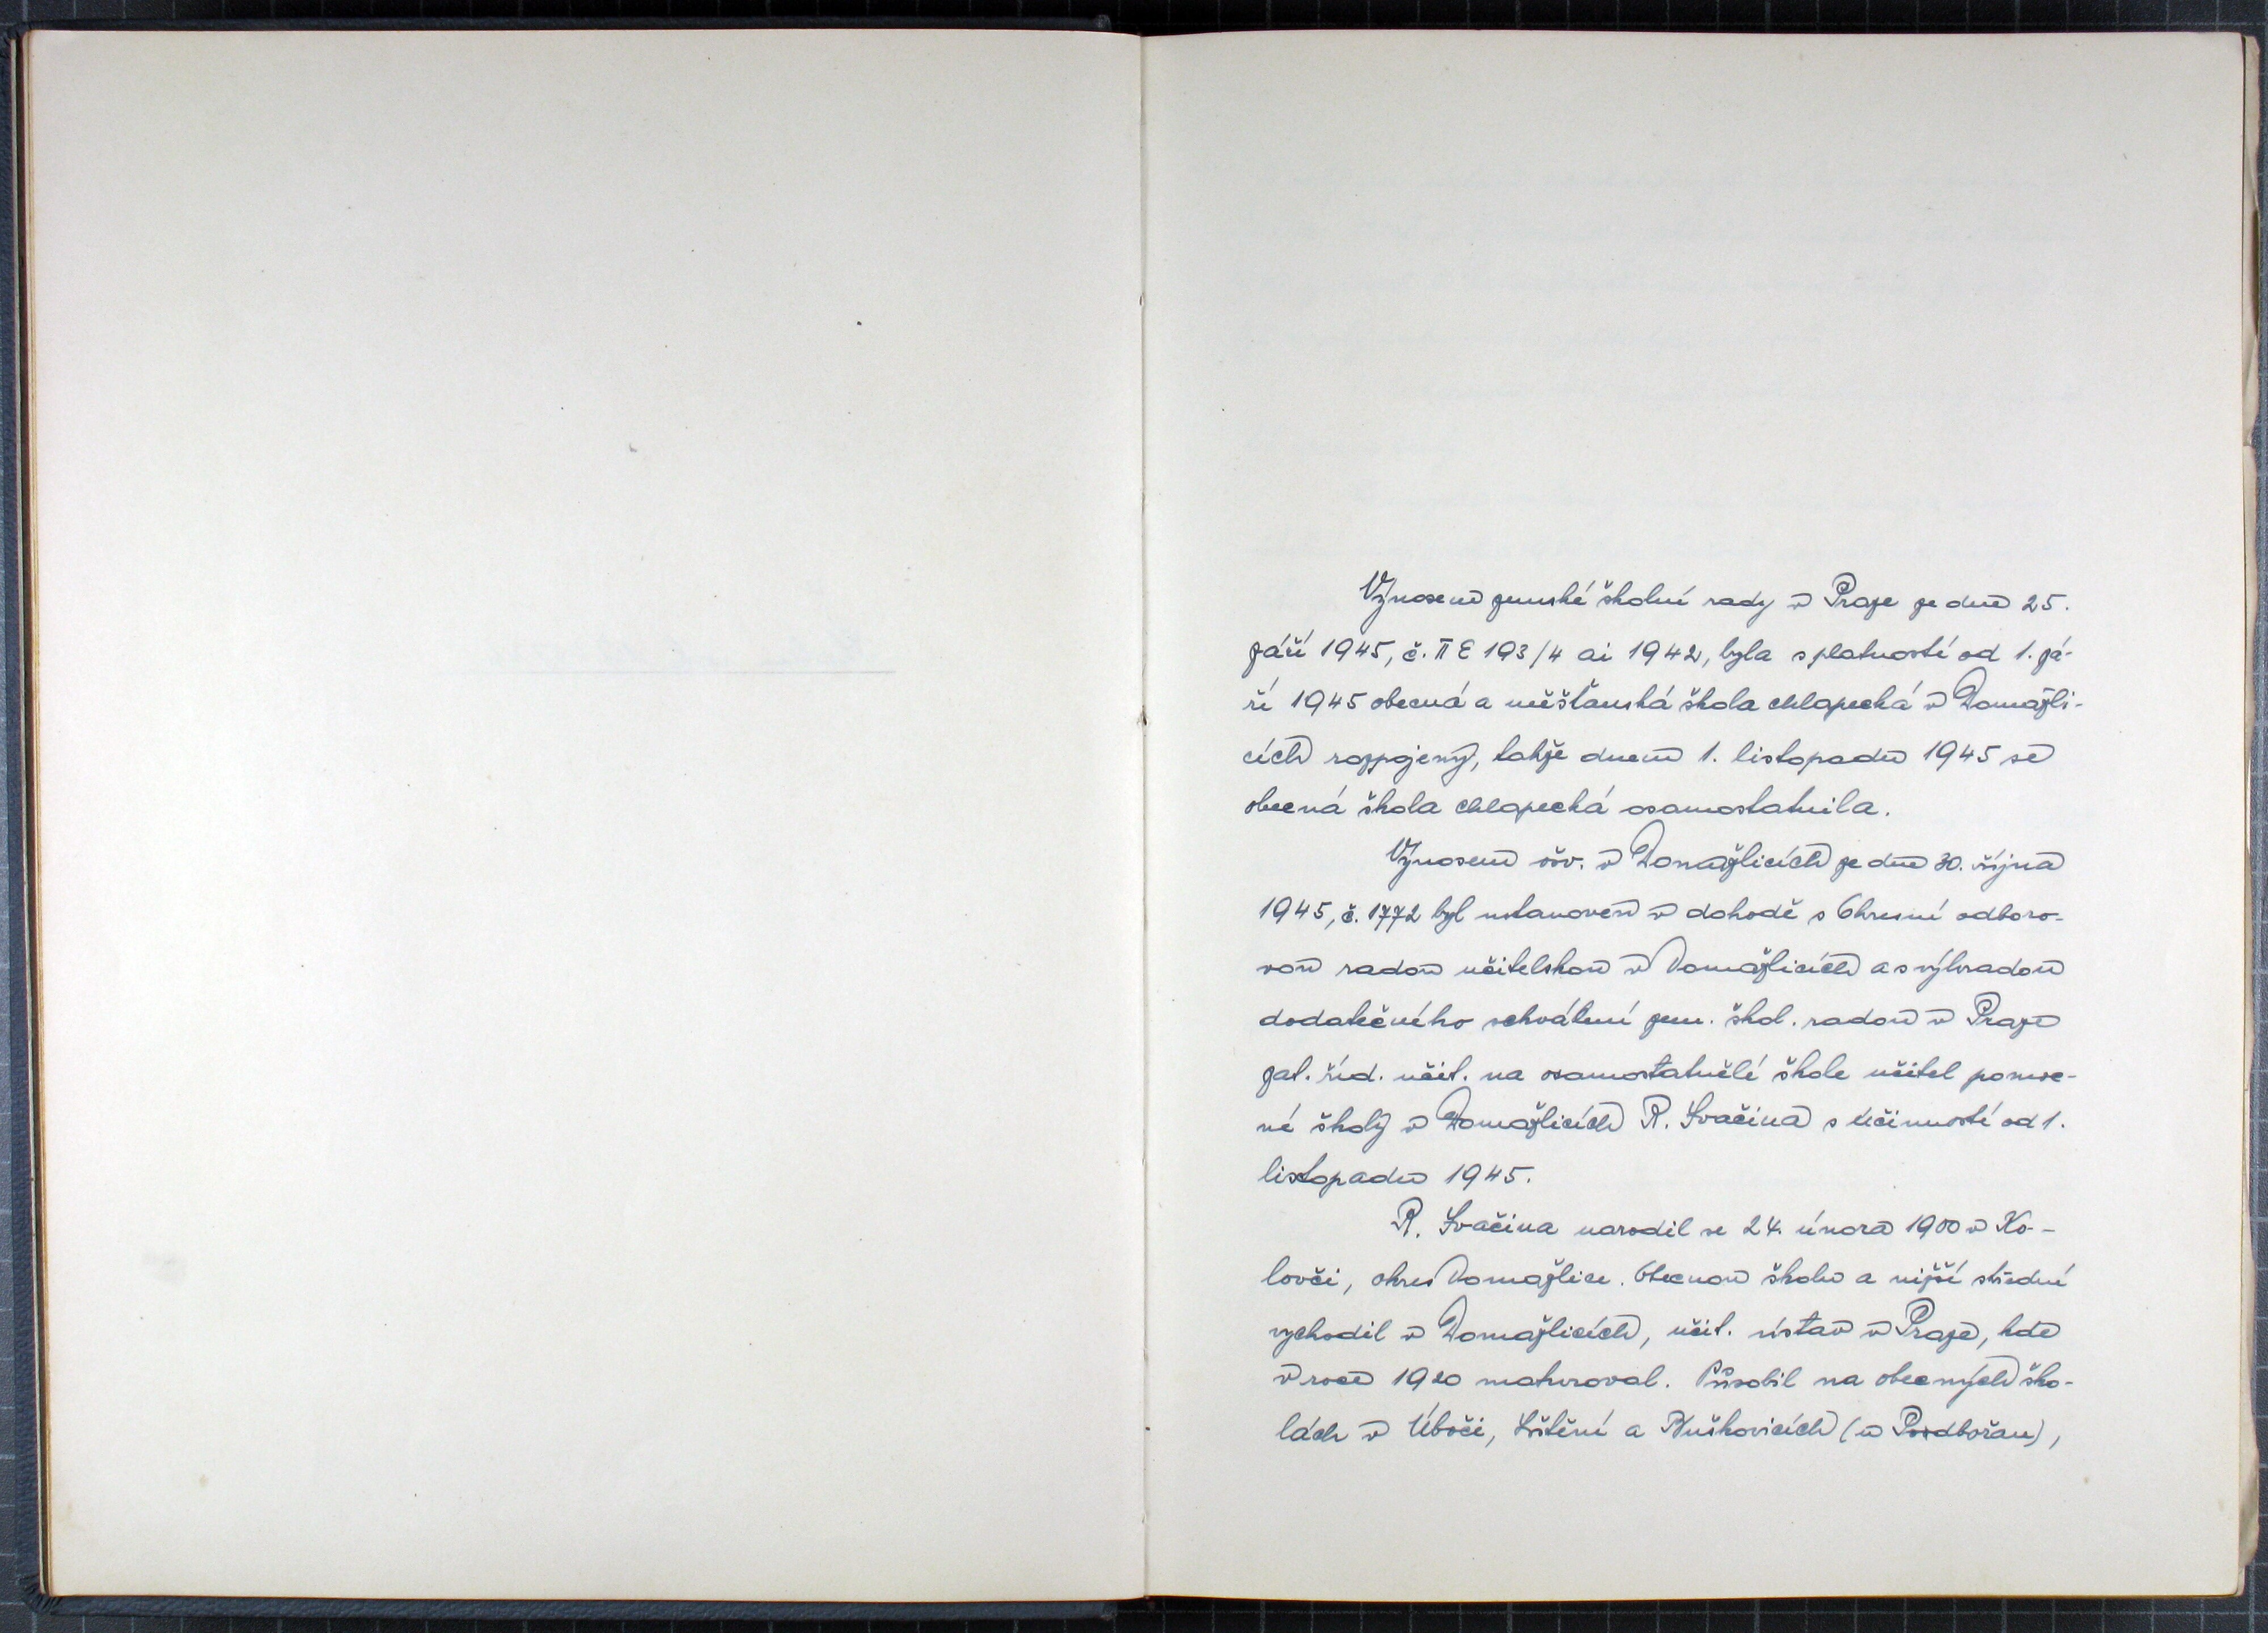 Výnosem zemské školní rady v Praze ze dne 25.
září 1945, č. II E 193/4 ai 1942, byla s platností od 1. zá-
ří 1945 obecná a měšťanská škola chlapecká v Domažli-
cích rozpojeny, takže dnem 1. listopadu 1945 se
obecná škola chlapecká osamostatnila.
Výnosem ošv. v Domažlicích ze dne 30. října
1945, č. 1772 byl ustanoven v dohodě s Okresní odboro-
vou radou učitelskou v Domažlicích a s výhradou
dodatečného schválení zem. škol. radou v Praze
zat. říd. učit. na osamostatnělé škole učitel pomoc-
né školy v Domažlicích R. Svačina s účinností od 1.
listopadu 1945.
R. Svačina narodil se 24. února 1900 v Ko-
lovči, okres Domažlice. Obecnou školu a nižší střední
vychodil v Domažlicích, učit. ústav v Praze, kde
v roce 1920 maturoval. Působil na obecných ško-
lách v Úboči, Luštění a Blušovicích (u Podbořan),